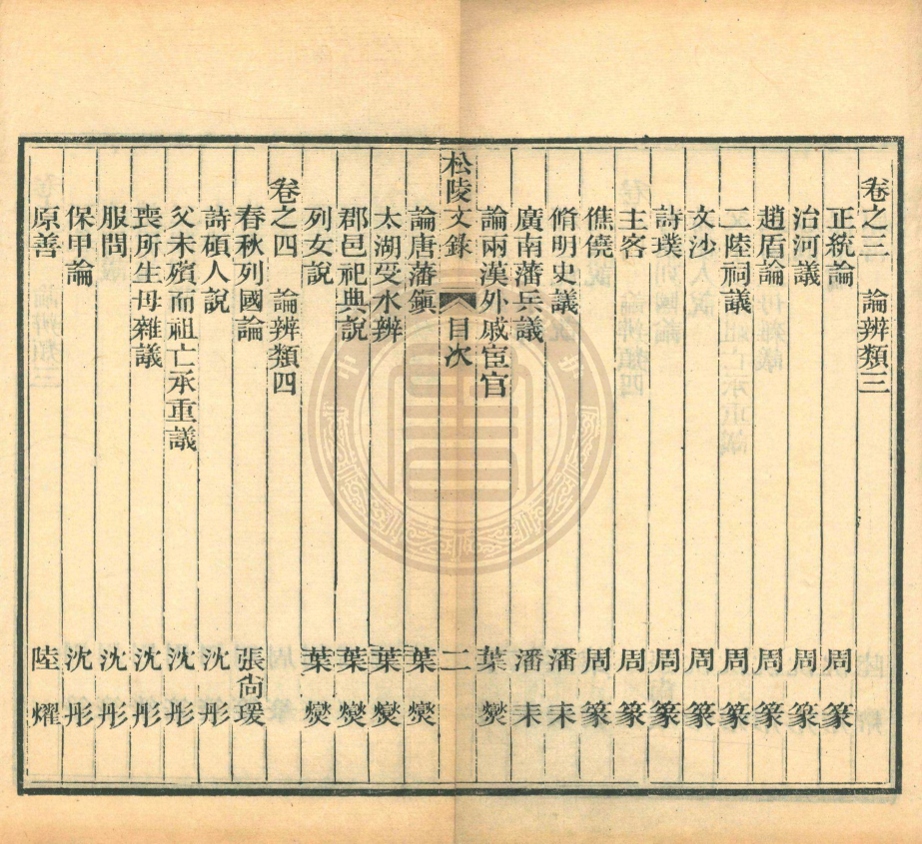 卷之三　論辨類三
正統論　周篆
治河議　周篆
趙盾論　周篆
二陸祠議　周篆
文沙　周篆
詩璞　周篆
主客　周篆
僬僥　周篆
脩明史議　潘耒
廣南藩兵議　潘耒
論兩漢外戚宦官　葉燮
松陵文錄　目次　二
論唐藩鎭　葉燮
太湖受水辨　葉燮
郡邑祀典說　葉燮
列女說　葉燮
卷之四　論辨類四
春秋列國論　張尙瑗
詩碩人說　沈彤
父未殯而祖亡承重議　沈彤
喪所生母雜議　沈彤
服問　沈彤
保甲論　沈彤
原善　陸燿